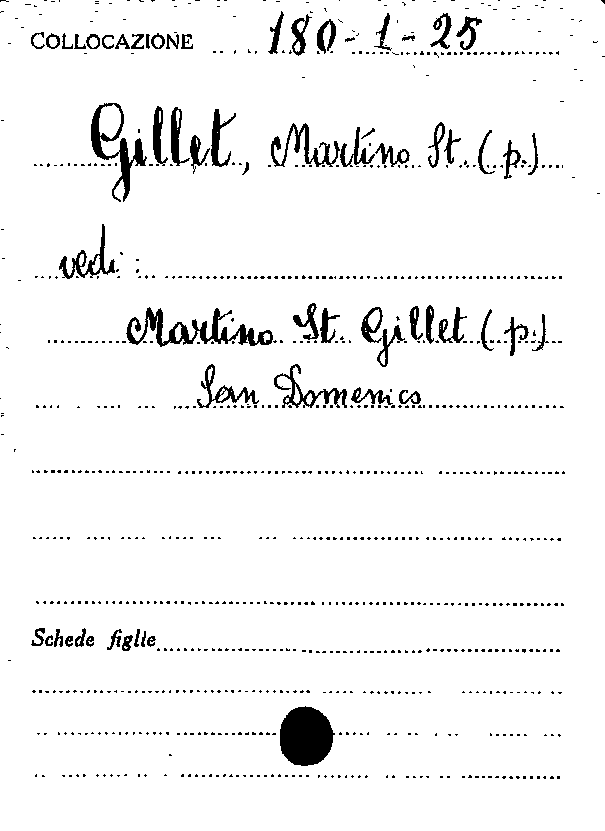 COLLOCAZIONE 180-1-25
Gillet, Martino St. (p.)
vedi:
Martino St. Gillet (p.)
San Domenico
Schede figlie